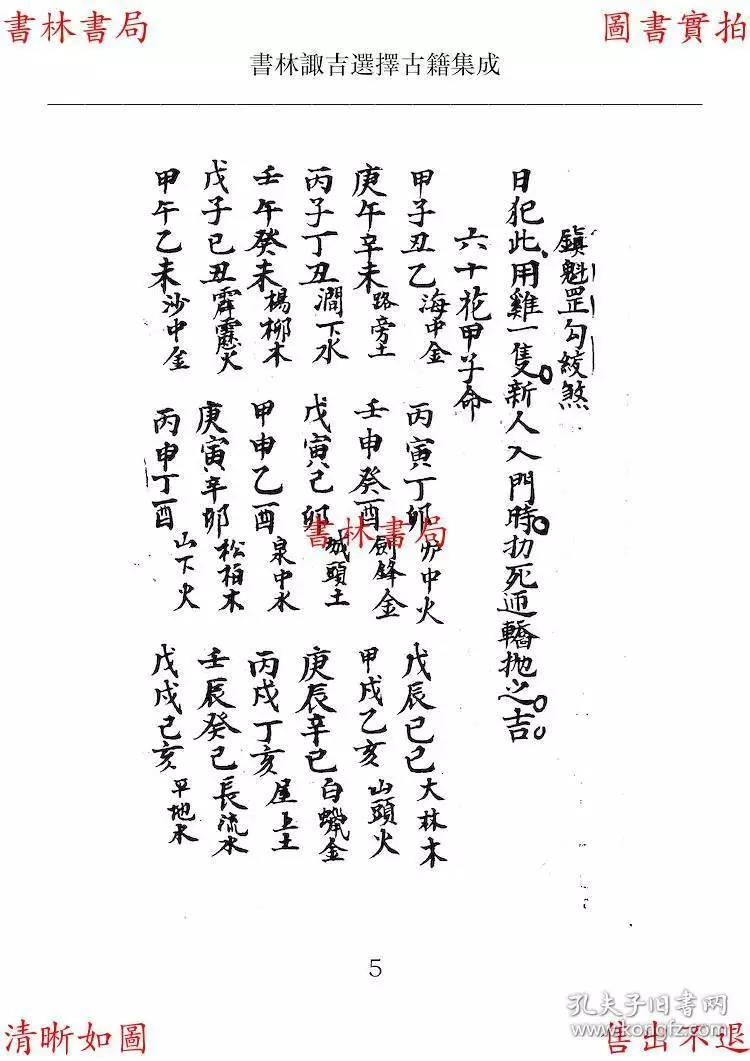 書林書局
圖書實拍
書林諏吉選擇古籍集成
鎮魁罡勾絞煞
日犯此用雞一隻新人入門時扐死迊轎拋之吉
六十花甲子命
甲子丑乙海中金 丙寅丁卯炉中火 戊辰己巳大林木
庚午辛未路旁土 壬申癸酉劍鋒金 甲戌乙亥山頭火
丙子丁丑澗下水 戊寅己卯城頭土 庚辰辛巳白蠟金
壬午癸未楊柳木 甲申乙酉泉中水 丙戌丁亥屋上土
戊子己丑霹靂火 庚寅辛卯松柏木 壬辰癸巳長流水
甲午乙未沙中金 丙申丁酉山下火 戊戌己亥平地木
書林書局
5
孔夫子旧書网
www.kongfz.com
清晰如圖
售出不退